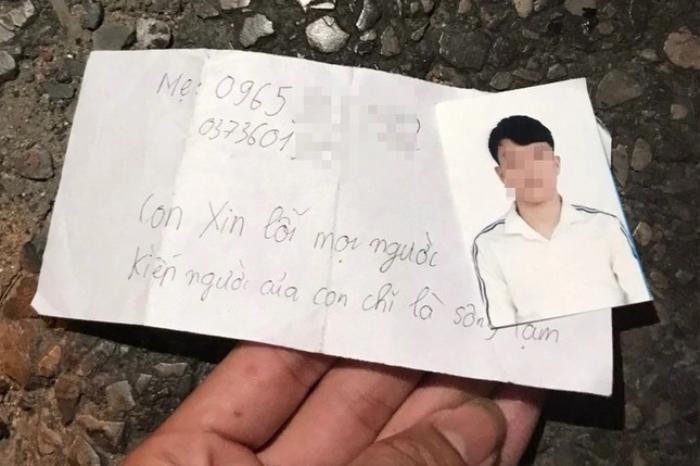 Mẹ: 0965
0373601
Con Xin lỗi mọi người
Kiếp người của con chỉ là sống tạm